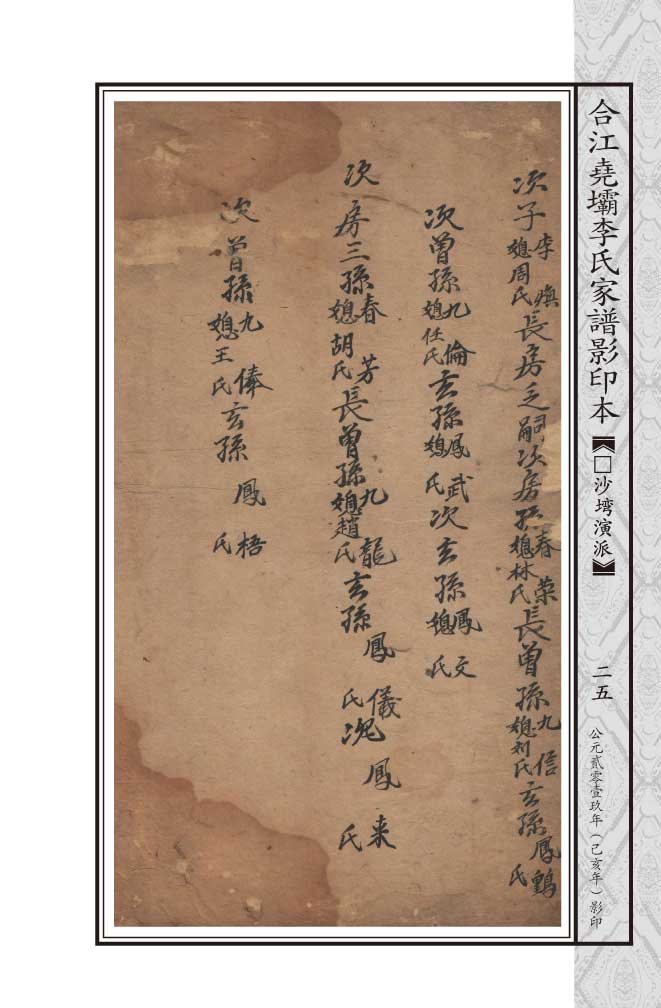 合江堯壩李氏家譜影印本
【《□沙塆演派》】
二五
公元貳零壹玖年（己亥年）影印
次子李 媳周氏長房乏嗣次房孫春榮媳林氏長曾孫九信媳刘氏玄孫鳳 氏
次曾孫九倫媳任氏玄孫鳳武媳 氏次玄孫鳳文媳 氏
次房三孫春芳媳胡氏長曾孫九龍媳趙氏玄孫鳳儀 氏次鳳来 氏
次曾孫九俸媳王氏玄孫鳳梧 氏